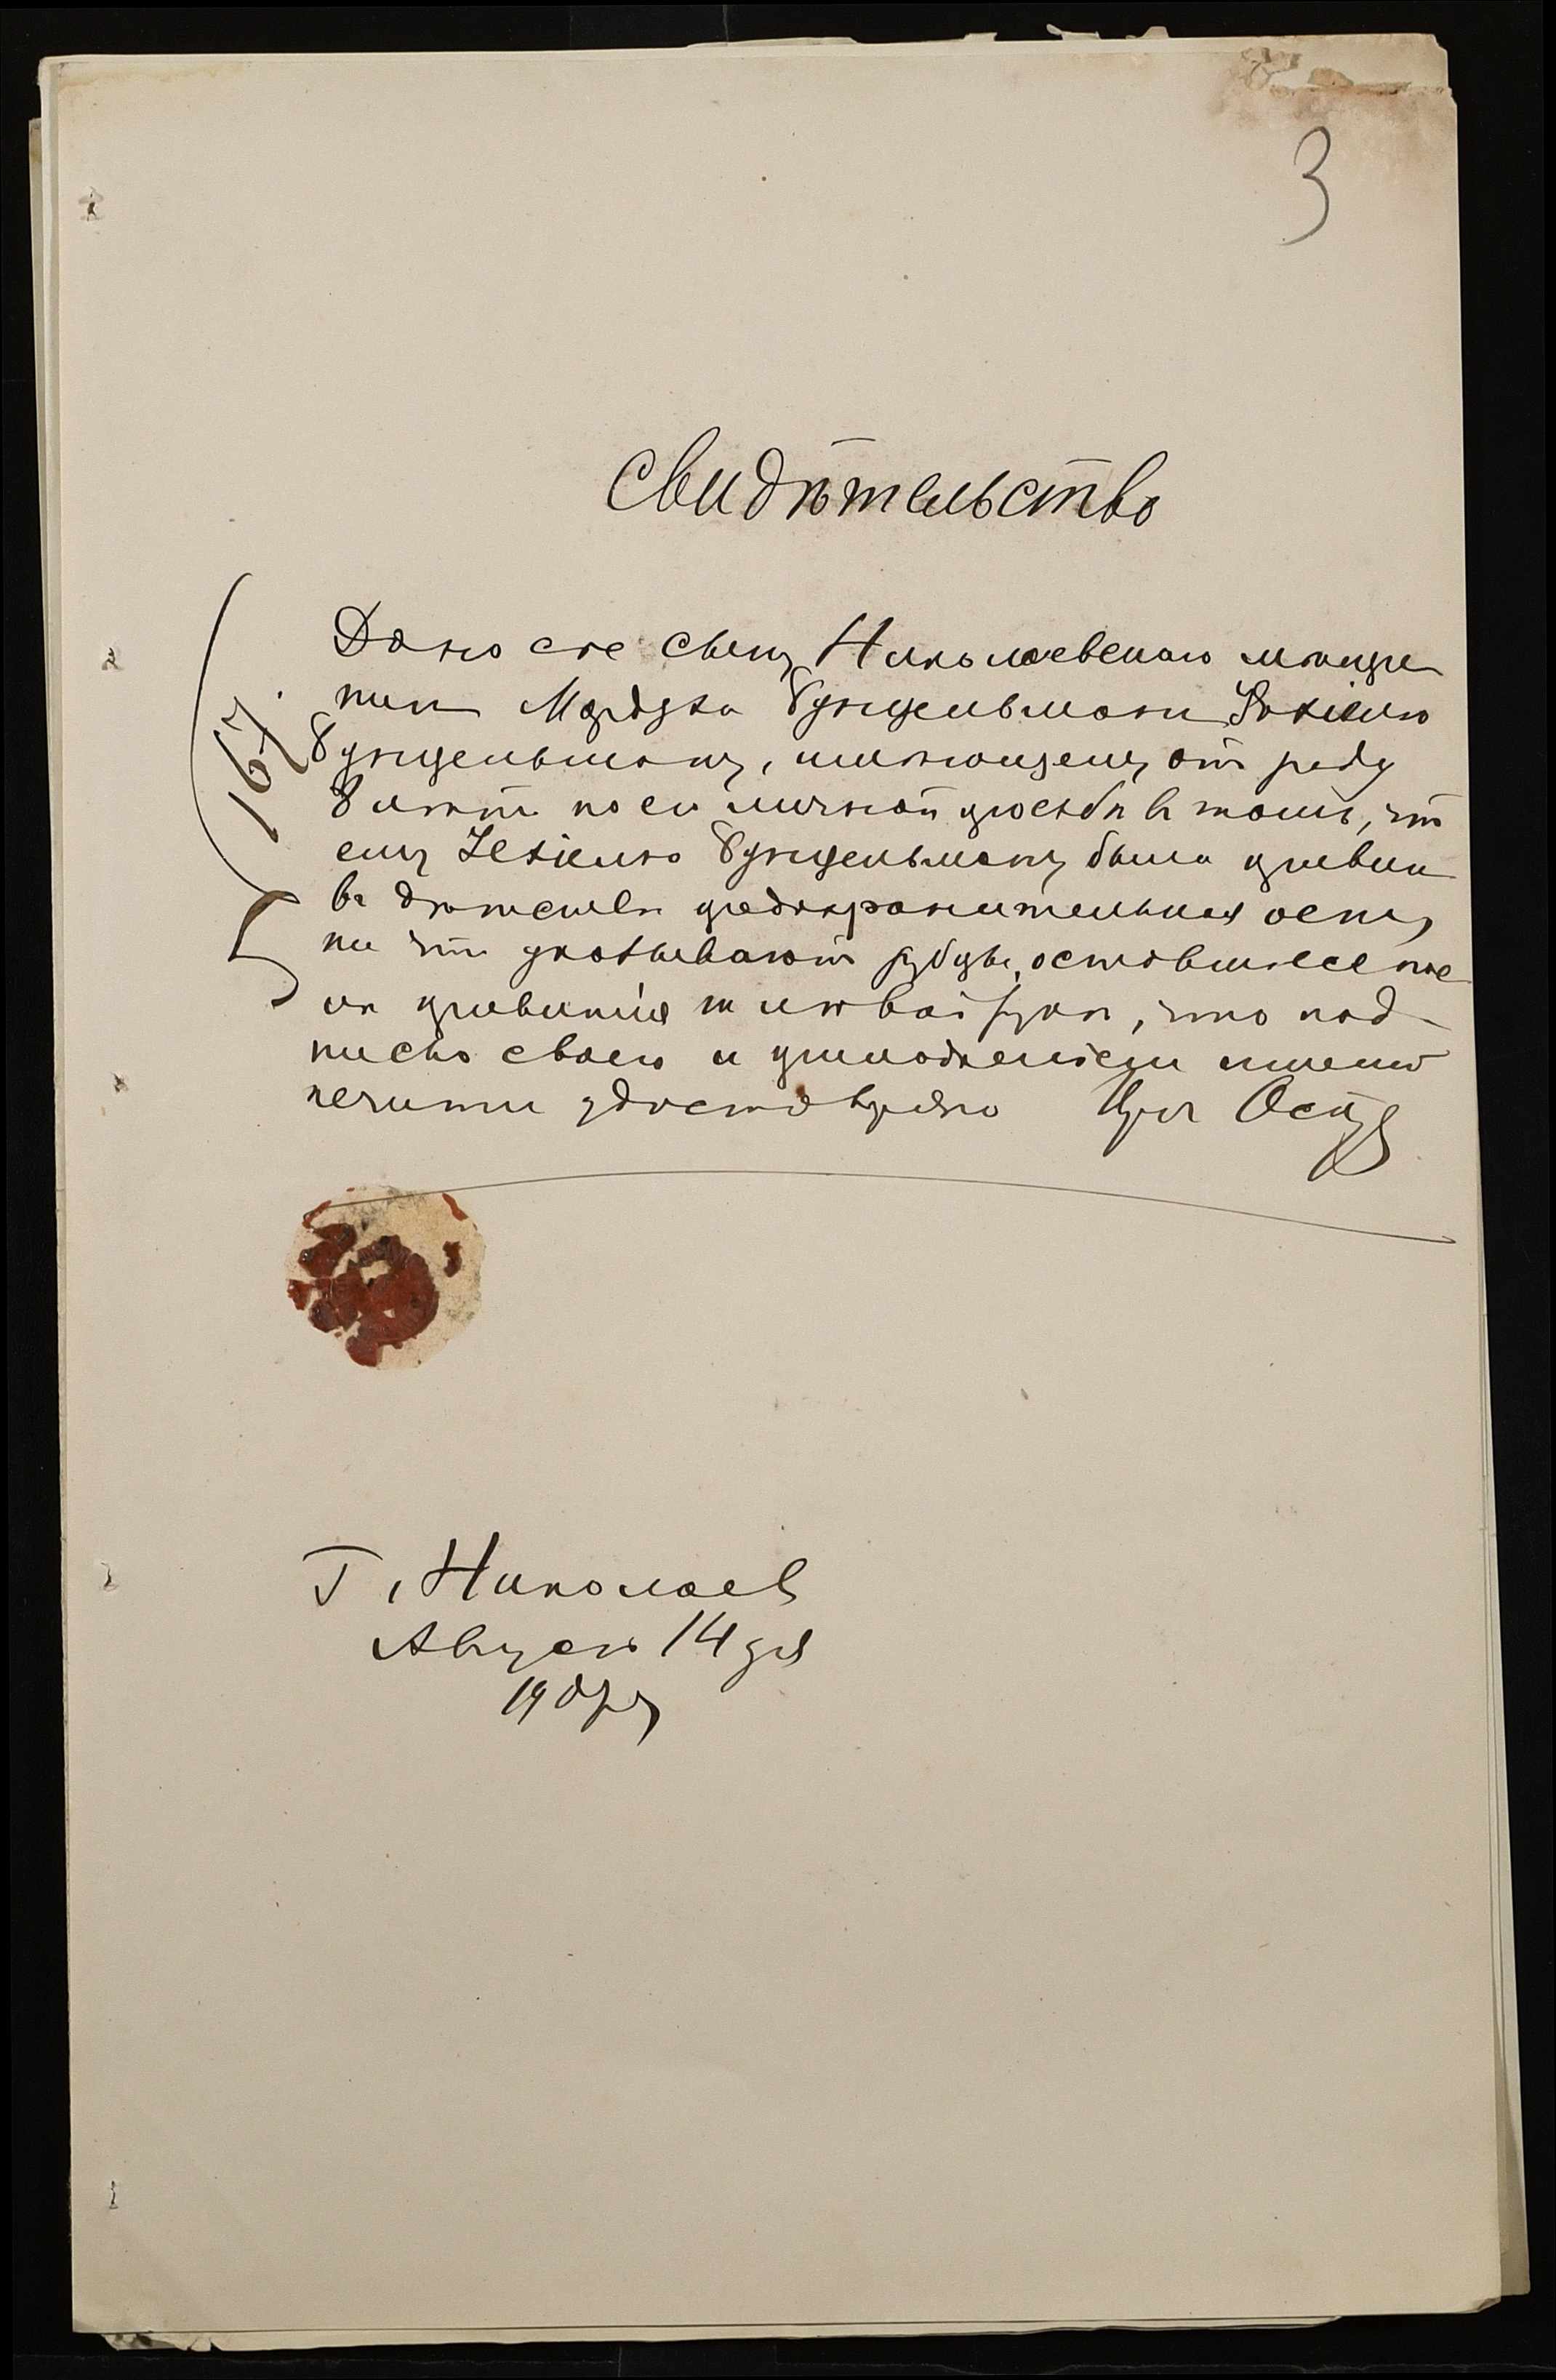 3
Свидѣтельство
167.
Дано сіе сыну Николаевскаго мѣщанина
Мордуха Бунцельмана Іехіелю
Бунцельману, имѣющему отъ роду
8 лѣтъ по его личной просьбѣ въ томъ, что
ему Іехіелю Бунцельману была привита
въ дѣтствѣ предохранительная оспа,
на что указываютъ рубцы, оставшіеся послѣ
привитія на лѣвой рукѣ, что подписью
своею и приложеніемъ именной
печати удостовѣряю Врач
Г. Николаевъ
Августа 14 дня
190